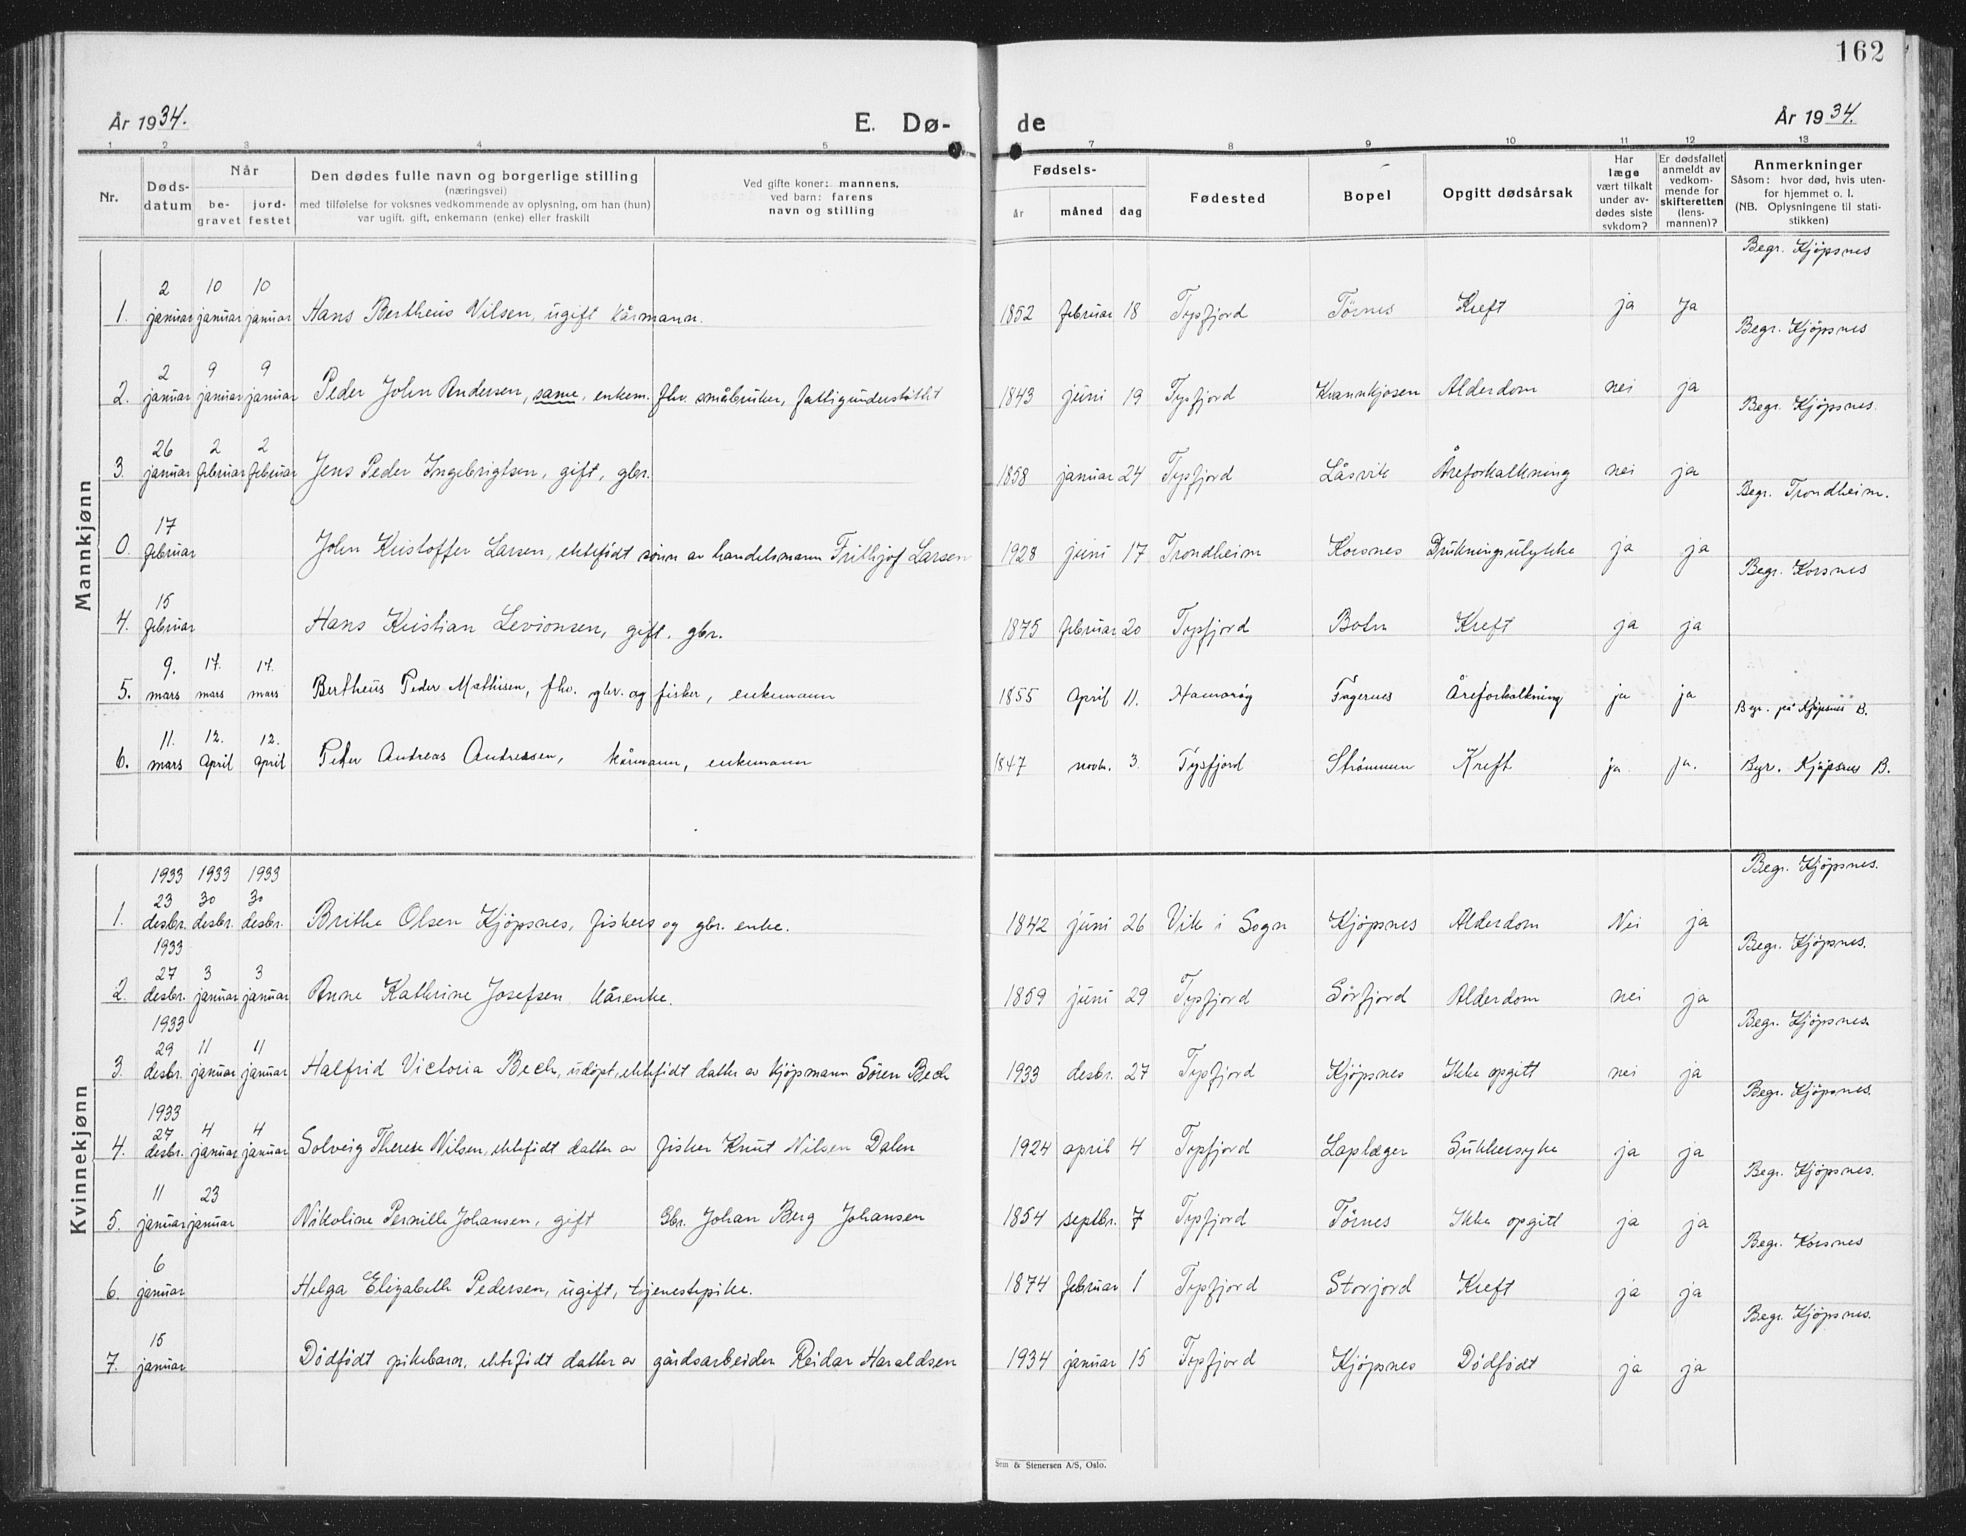 162
År 1934.
E. Dø-
de
År 1934.
1 2 3 4 5 7 8 9 10 11 12 13
Nr.
Døds-
datum
Når
be-
gravet
jord-
festet
Den dødes fulle navn og borgerlige stilling
(næringsvei)
med tilføielse for voksnes vedkommende av oplysning, om han (hun)
var ugift, gift, enkemann (enke) eller fraskilt
Ved gifte koner: mannens,
ved barn: farens
navn og stilling
Fødsels-
år måned dag
Fødested
Bopel
Opgitt dødsårsak
Har
læge
vært tilkalt
under av-
dødes siste
sykdom?
Er dødsfallet
anmeldt av
vedkom-
mende for
skifteretten
(lens-
mannen)?
Anmerkninger
Såsom: hvor død, hvis uten-
for hjemmet o. l.
(NB. Oplysningene til stati-
stikken)
Mannkjønn
Begr. Kjöpsnes
2 10 10
1. januar januar januar Hans Bertheus Nilsen, ugift kårmann. 1852 februar 18 Tysfjord Törnes Kreft ja ja
Begr. Kjöpsnes
2 9 9
2. januar januar januar Peder John Andersen, same, enkem. fhv. småbruker, fattigunderstöttet 1843 juni 19 Tysfjord Kvannkjosen Alderdom nei ja
Begr. Kjöpsnes.
26 2 2
3. januar februar februar Jens Peder Ingebrigtsen, gift, gbr. 1858 januar 24 Tysfjord Låsvik Åreforkalkning nei ja
Begr. Trondheim.
17
0. februar John Kristoffer Larsen, ektefödt sönn av handelsmann Frithjof Larsen 1928 juni 17 Trondheim Korsnes Drukningsulykke ja ja
Begr. Korsnes
15
4. februar Hans Kristian Levionsen, gift, gbr. 1875 februar 20 Tysfjord Botn Kreft ja ja
9. 17. 17.
5. mars mars mars Bertheus Peder Mathisen, fhv. gbr. og fisker, enkemann 1855 April 11. Hamaröy Fagernes Åreforkalkning ja ja Begr. på Kjöpsnes B.
11. 12. 12.
6. mars April April Peder Andreas Andreassen, kårmann, enkemann 1847 novb. 3. Tysfjord Strömmen Kreft ja ja. Begr. Kjöpsnes B.
Kvinnekjønn
1933 1933 1933
Begr. Kjöpsnes.
23 30 30
1. desbr. desbr. desbr. Brithe Olsen Kjöpsnes, fiskers og gbr. enke. 1842 juni 26 Vik i Sogn Kjöpsnes Alderdom Nei ja
1933
Begr. Kjöpsnes.
27 3 3
2. desbr. januar januar Anne Kathrine Josefsen kårenke. 1859 juni 29 Tysfjord Sörfjord Alderdom nei ja
1933
Begr. Kjöpsnes.
29 11 11
3. desbr. januar januar Halfrid Victoria Bech, udöpt, ektefödt datter av kjöpmann Sören Bech 1933 desbr. 27 Tysfjord Kjöpsnes Ikke opgitt nei ja
1933
Begr. Kjöpsnes.
27 4 4
4. desbr. januar januar Solveig Therese Nilsen, ektefödt datter av fisker Knut Nilsen Dalen 1924 april 4 Tysfjord Laplæger Sukkersyke ja ja
Begr. Kjöpsnes.
11 23
5. januar januar Nikoline Pernille Johansen, gift Gbr. Johan Berg Johansen 1854 septbr. 7 Tysfjord Törnes Ikke opgitt ja ja
Begr. Korsnes
6
6. januar Helga Elizabeth Pedersen, ugift, tjenestepike. 1874 februar 1 Tysfjord Storjord Kreft ja ja
Begr. Kjöpsnes.
15
7. januar Dödfödt pikebarn, ektefödt datter av gårdsarbeider Reidar Haraldsen 1934 januar 15 Tysfjord Kjöpsnes Dödfödt ja ja
Sem & Stenersen A/S, Oslo.